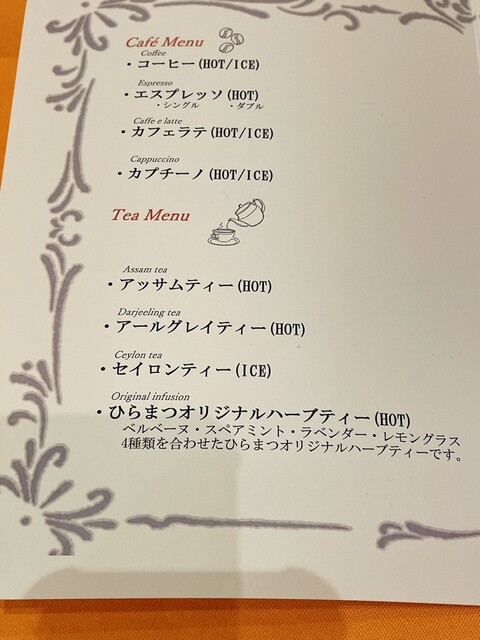 Café Menu
Coffee
・コーヒー(HOT/ICE)
Espresso
・エスプレッソ(HOT)
・シングル ・ダブル
Caffe e latte
・カフェラテ(HOT/ICE)
Cappuccino
・カプチーノ(HOT/ICE)
Tea Menu
Assam tea
・アッサムティー(HOT)
Darjeeling tea
・アールグレイティー(HOT)
Ceylon tea
・セイロンティー(ICE)
Original infusion
・ひらまつオリジナルハーブティー(HOT)
ベルベーヌ・スペアミント・ラベンダー・レモングラス
4種類を合わせたひらまつオリジナルハーブティーです。